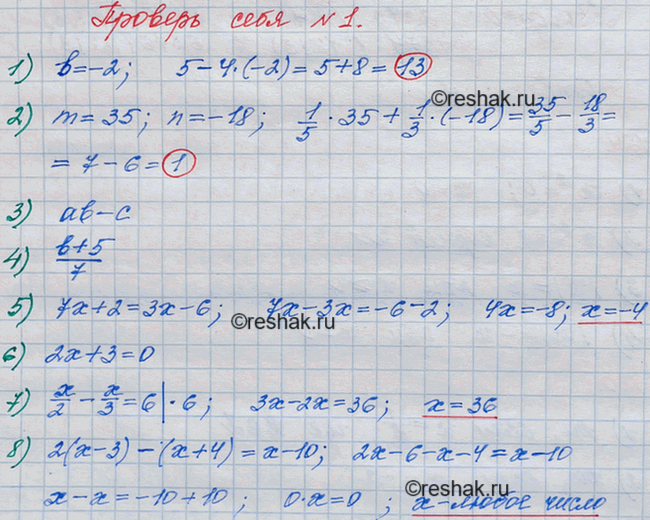 Проверь себя №1.
1) b=-2; 5-4·(-2)=5+8=13
©reshak.ru
2) m=35; n=-18; 1/5·35+1/3·(-18)=35/5-18/3=
=7-6=1
3) ab-c
4) (b+5)/7
5) 7x+2=3x-6; 7x-3x=-6-2; 4x=-8; x=-4
©reshak.ru
6) 2x+3=0
7) x/2-x/3=6|·6; 3x-2x=36; x=36
8) 2(x-3)-(x+4)=x-10; 2x-6-x-4=x-10
x-x=-10+10; 0·x=0; x-любое число
©reshak.ru